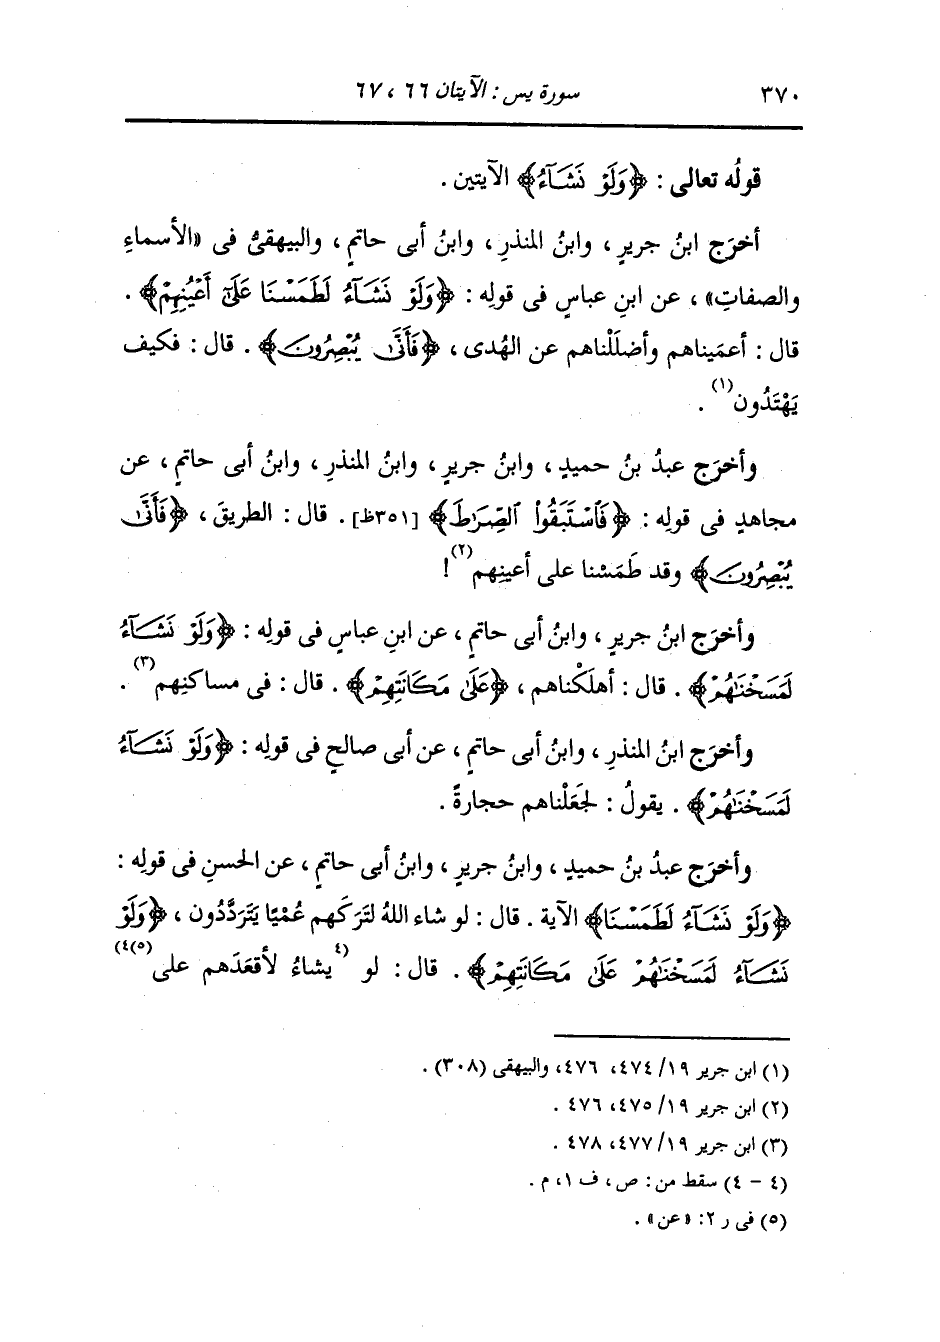 ٣٧٠ سورة يس : الآيتان ٦٦ ، ٦٧
قولُه تعالى : ﴿وَلَوْ نَشَآءُ﴾ الآيتين .
أخرَج ابنُ جريرٍ ، وابنُ المنذرِ ، وابنُ أبى حاتمٍ ، والبيهقىُّ فى «الأسماءِ
والصفاتِ» ، عن ابنِ عباسٍ فى قولِه : ﴿وَلَوْ نَشَآءُ لَطَمَسْنَا عَلَىٰٓ أَعْيُنِهِمْ﴾ .
قال : أعمَيناهم وأضلَلْناهم عن الهُدى ، ﴿فَأَنَّىٰ يُبْصِرُونَ﴾ . قال : فكيف
يَهْتَدُون(١) .
وأخرَج عبدُ بنُ حميدٍ ، وابنُ جريرٍ ، وابنُ المنذرِ ، وابنُ أبى حاتمٍ ، عن
مجاهدٍ فى قولِه : ﴿فَٱسْتَبَقُواْ ٱلصِّرَٰطَ﴾ [٣٥١ظ] . قال : الطريقَ ، ﴿فَأَنَّىٰ
يُبْصِرُونَ﴾ وقد طَمَسْنا على أعينِهم(٢)!
وأخرَج ابنُ جريرٍ ، وابنُ أبى حاتمٍ ، عن ابنِ عباسٍ فى قولِه : ﴿وَلَوْ نَشَآءُ
لَمَسَخْنَٰهُمْ﴾ . قال : أهلَكْناهم ، ﴿عَلَىٰ مَكَانَتِهِمْ﴾ . قال : فى مساكنِهم(٣) .
وأخرَج ابنُ المنذرِ ، وابنُ أبى حاتمٍ ، عن أبى صالحٍ فى قولِه : ﴿وَلَوْ نَشَآءُ
لَمَسَخْنَٰهُمْ﴾ . يقولُ : لجَعَلْناهم حجارةً .
وأخرَج عبدُ بنُ حميدٍ ، وابنُ جريرٍ ، وابنُ أبى حاتمٍ ، عن الحسنِ فى قولِه :
﴿وَلَوْ نَشَآءُ لَطَمَسْنَا﴾ الآية . قال : لو شاء اللهُ لتَرَكَهم عُمْيًا يَتَردَّدُون ، ﴿وَلَوْ
نَشَآءُ لَمَسَخْنَٰهُمْ عَلَىٰ مَكَانَتِهِمْ﴾ . قال : لو (٤يشاءُ لأقعَدَهم على(٥)٤)
(١) ابن جرير ١٩/ ٤٧٤، ٤٧٦، والبيهقى (٣٠٨) .
(٢) ابن جرير ١٩/ ٤٧٥، ٤٧٦ .
(٣) ابن جرير ١٩/ ٤٧٧، ٤٧٨ .
(٤ - ٤) سقط من : ص ، ف ١، م .
(٥) فى ر ٢: «عن» .